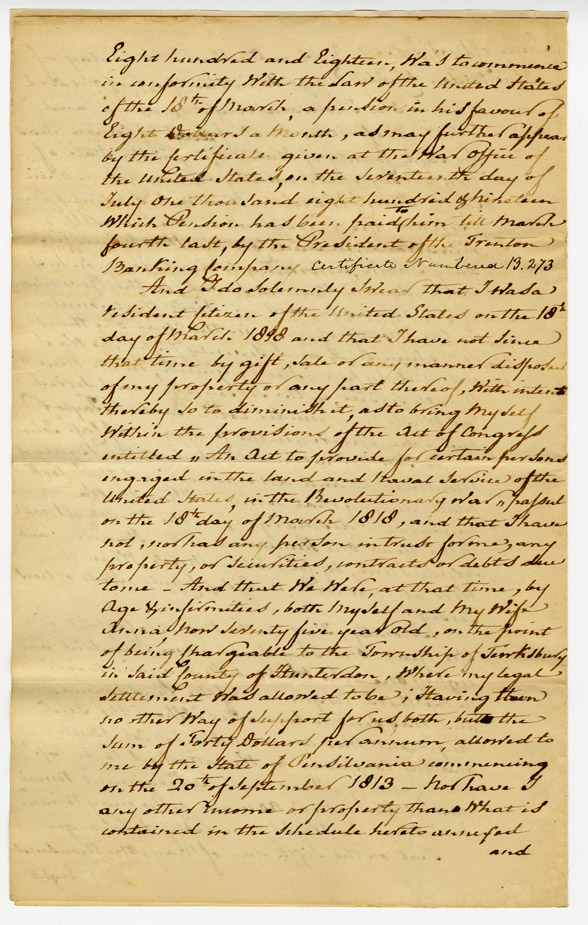 Eight hundred and Eighteen, Was to commence
in conformity With the Law of the United States
of the 18th of March, a pension in his favour of
Eight Dollars a Month, as may further appear
by the Certificate given at the War Office of
the United States, on the Seventeenth day of
July One thousand eight hundred & Nineteen
Which Pension has been paid to him till March
fourth last, by the President of the Trenton
Banking Company Certificate Numbered 13.273
And I do Solemnly Swear that I Was a
resident Citizen of the United States on the 18th
day of March 1818 and that I have not Since
that time by gift, Sale or any manner disposed
of my property or any part thereof, With intent
thereby So to diminish it, as to bring Myself
Within the provisions of the Act of Congress
entitled „ An Act to provide for certain persons
engaged in the land and Naval Service of the
United States, in the Revolutionary War „ passed
on the 18th day of March 1818, and that I have
not, nor has any person in trust for me, any
property, or Securities, contracts or debts due
to me – And that We Were, at that time, by
Age & infirmities, both Myself and My Wife
Anna, Now Seventy five year old, on the point
of being Chargeable to the Township of Tewksbury
in Said County of Hunterdon, Where my legal
Settlement Was allowed to be; Having then
no other Way of Support for us both, but the
Sum of Forty Dollars per annum, allowed to
me by the State of Pensilvania commencing
on the 20th of September 1813 – Nor have I
any other Income or property than What is
contained in the Schedule hereto annexed
and